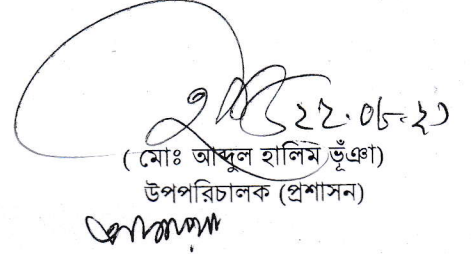 ২২.০৮.২১
( মোঃ আব্দুল হালিম ভূঁঞা)
উপপরিচালক (প্রশাসন)